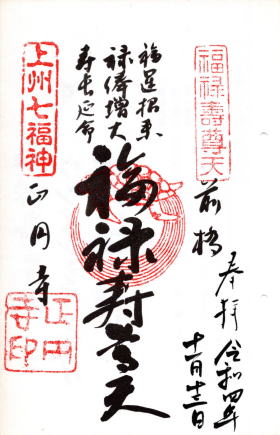 奉拝 令和四年
福禄壽尊天
前橋
福運招来
禄俸増大
寿長延命
福禄寿尊天
上州七福神
正円寺
正円寺印